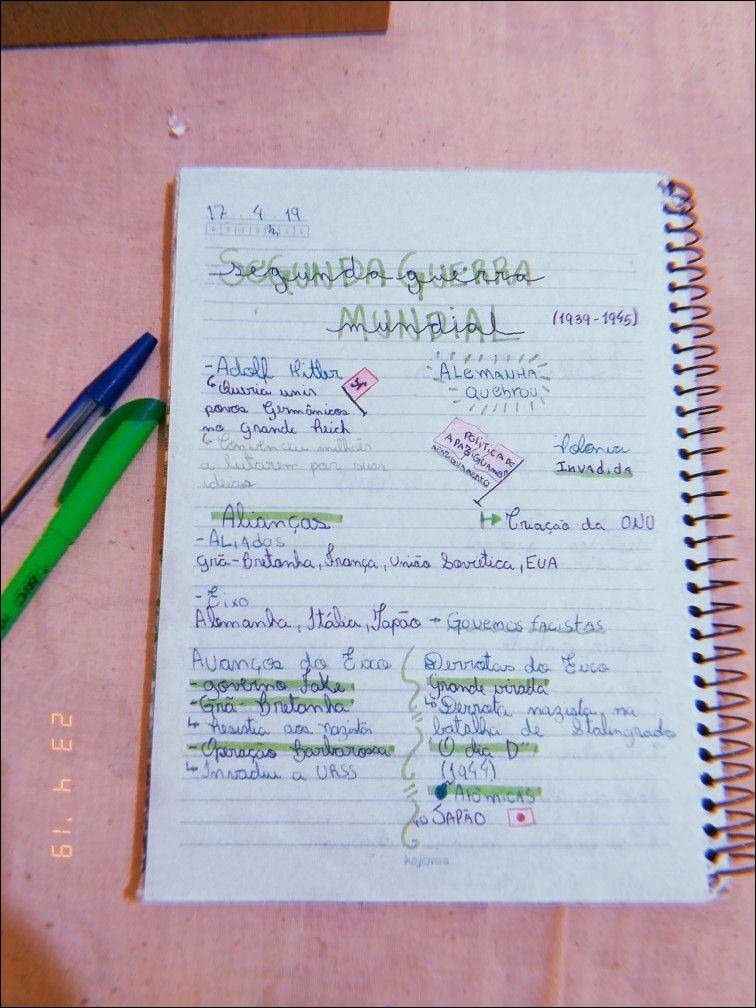 17 . 4 . 19
SEGUNDA GUERRA
segunda guerra
MUNDIAL
mundial
(1939-1945)
- Adolf Hitler
↳ Queria unir
povos Germânicos
no Grande Reich
↳ Convenceu milhões
a lutarem por suas
ideias
ALEMANHA
quebrou
POLÍTICA DE
APAZIGUAMENTO
Polonia
Invadida
↦ Criação da ONU
Alianças
- ALIADOS
Grã-Bretanha, França, União Soviética, EUA
- Eixo
Alemanha, Itália, Japão → Governos facistas
Avanços do Eixo
- governo fake
- Grã-Bretanha
↳ Resistia aos nazistas
- Operação Barbarossa
↳ Invadiu a URSS
Derrotas do Eixo
Grande virada
↳ Derrota nazista na
batalha de Stalingrado
"O dia D"
(1944)
ATÔMICAS
↳ JAPÃO
kajoma
BIC
23 4 '19